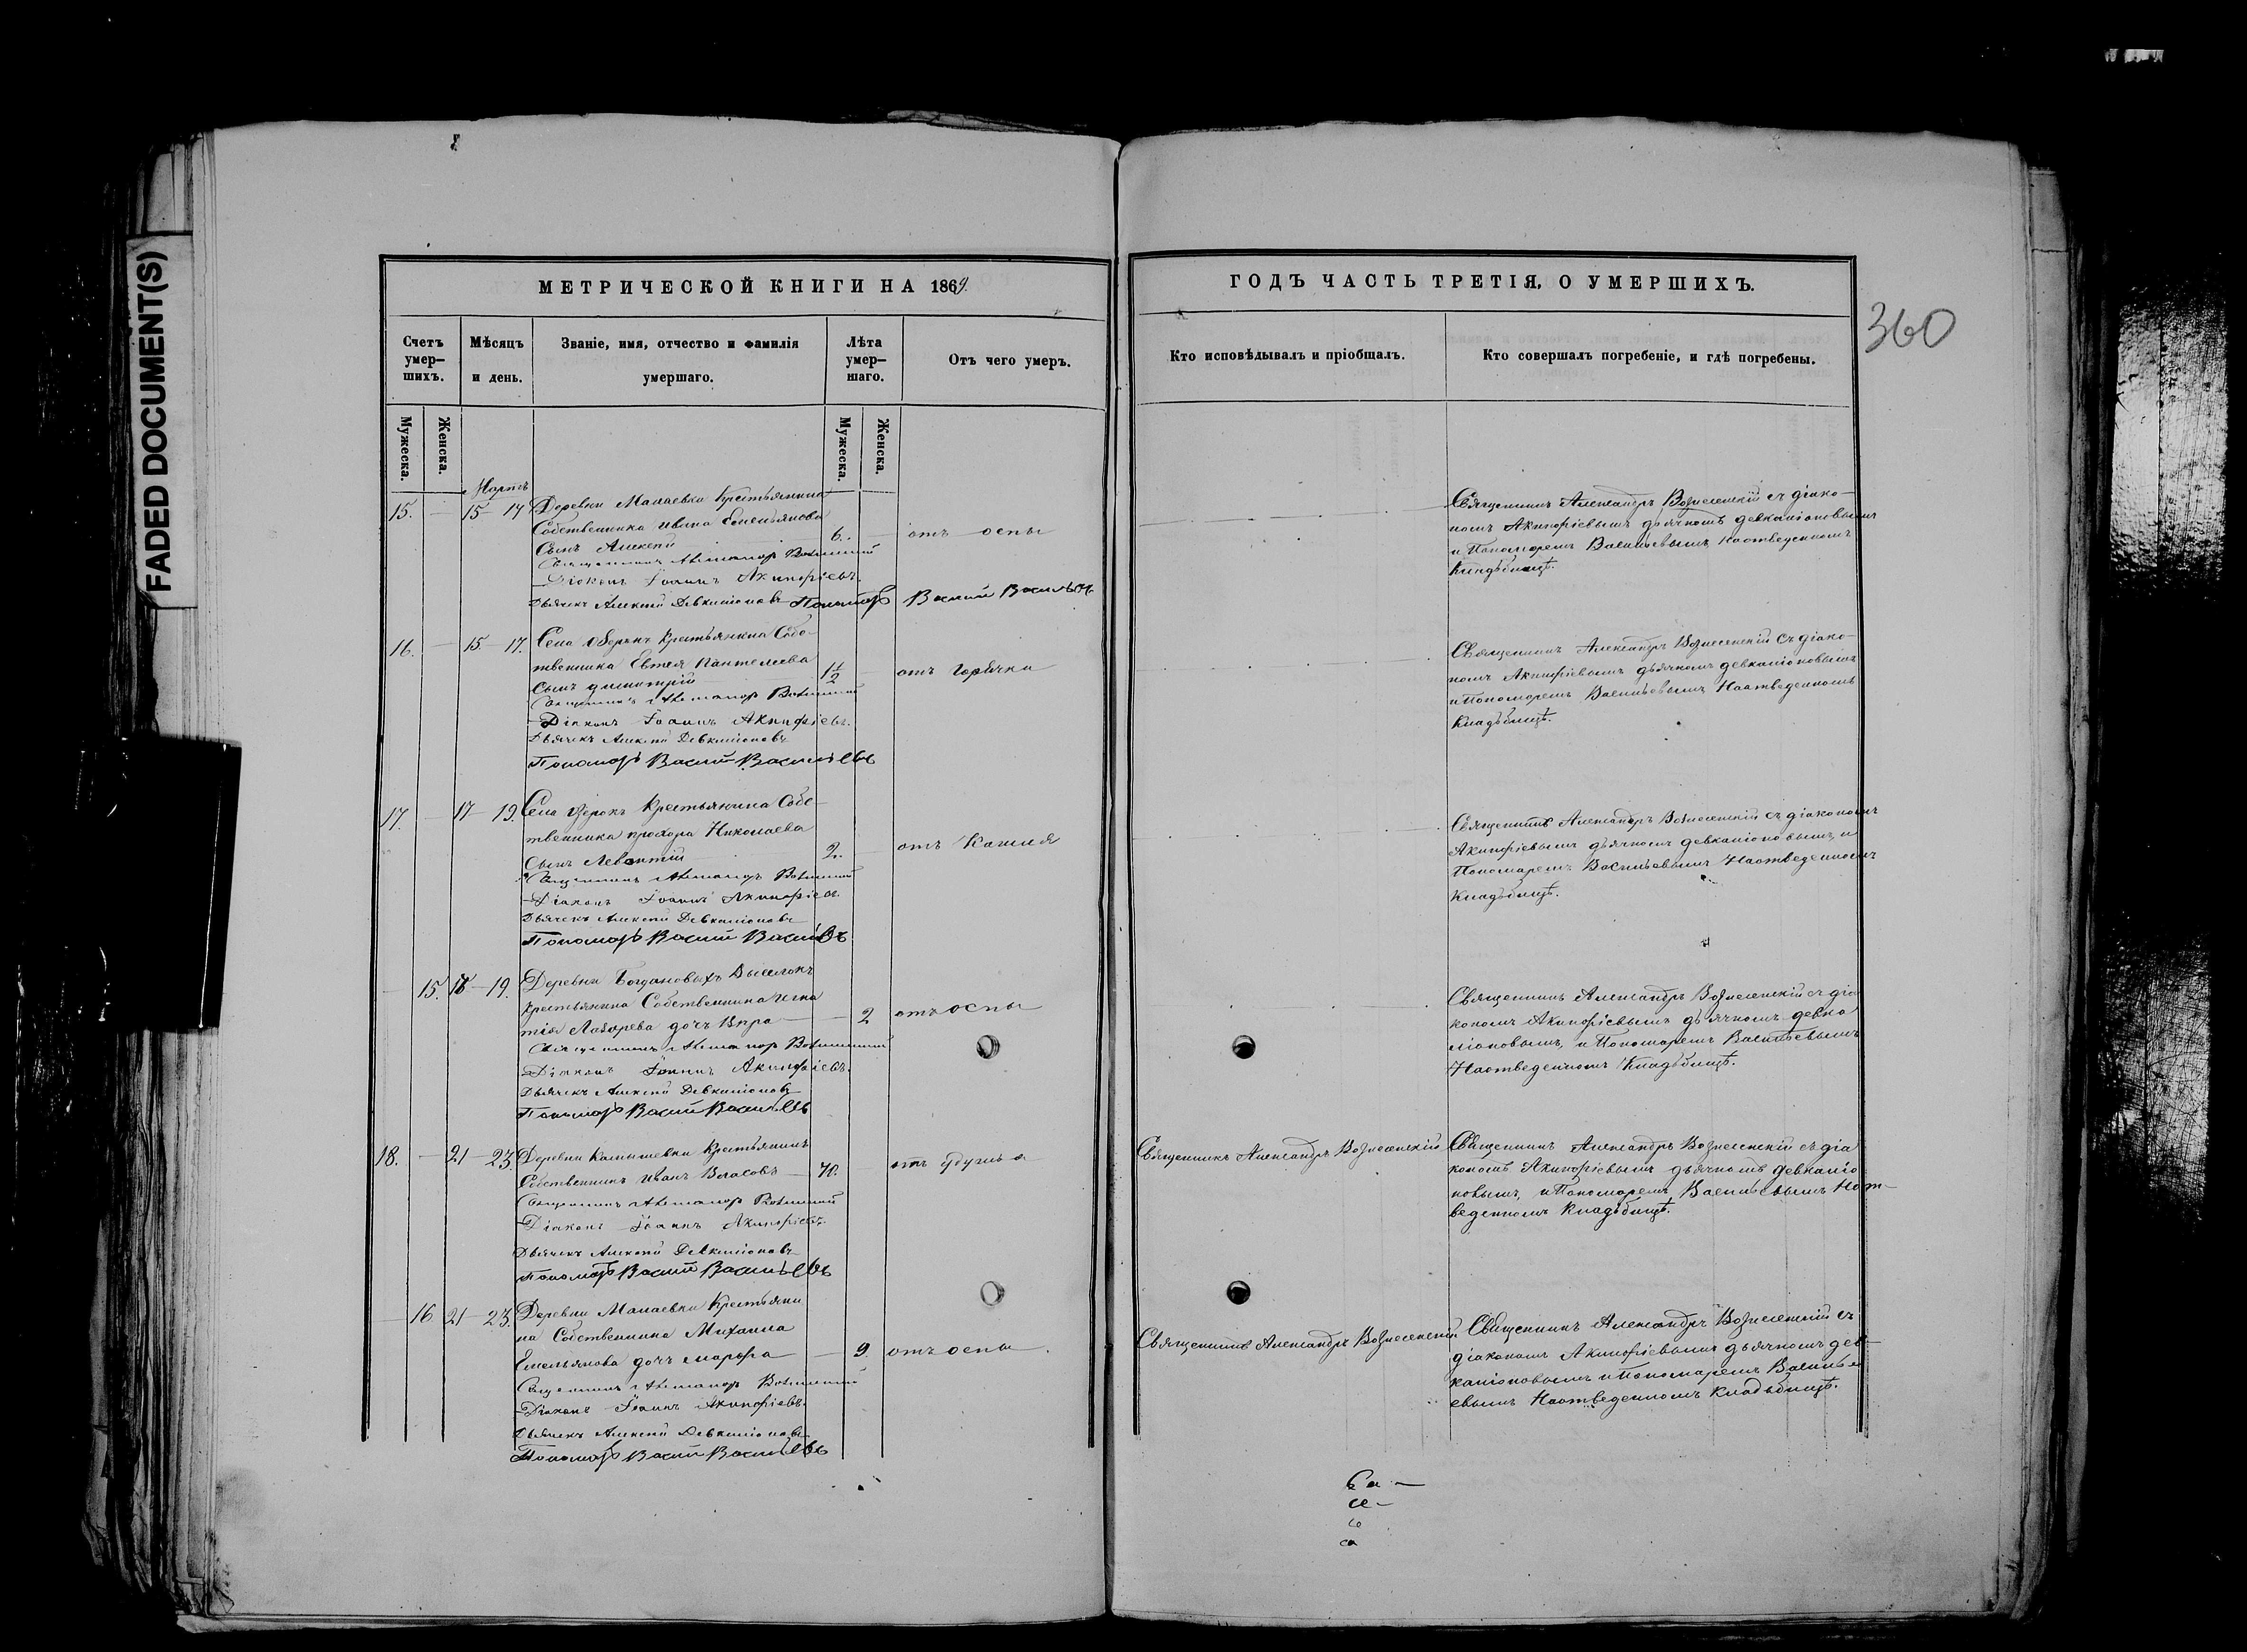 FADED DOCUMENT(S)
МЕТРИЧЕСКОЙ КНИГИ НА 1869.
Счетъ умер–шихъ.
Мѣсяцъ и день.
Званіе, имя, отчество и фамилія умершаго.
Лѣта умер–шаго.
Отъ чего умеръ.
Мужеска.
Женска.
Мужеска.
Женска.
Мартъ
15. — 15 – 17 Деревни Малаевки Крестьянина
Собственника Ивана Емельянова
Сынъ Алексей 6. — отъ оспы
Священникъ Александръ Вознесенскій
Діаконъ Іоаннъ Акинфіевъ.
Дьячекъ Алексей Девкаліоновъ Пономарь Василій Васильевъ
16. — 15 – 17. Села Крестьянина Собс–
твенника Пантелеева
Сынъ Димитрій 1/2 — отъ Горячки
Священникъ Александръ Вознесенскій
Діаконъ Іоаннъ Акинфіевъ.
Дьячекъ Алексей Девкаліоновъ
Пономарь Василій Васильевъ
17. — 17 – 19. Села Крестьянина Собс–
твенника Прохора Николаева
Сынъ Леонтій 2. — отъ Кашля
Священникъ Александръ Вознесенскій
Діаконъ Іоаннъ Акинфіевъ.
Дьячекъ Алексей Девкаліоновъ
Пономарь Василій Васильевъ
— 15. 18 – 19. Деревни Богдановыхъ Выселокъ
Крестьянина Собственника Игна
тія Лазарева дочь — 2 отъ оспы
Священникъ Александръ Вознесенскій
Діаконъ Іоаннъ Акинфіевъ.
Дьячекъ Алексей Девкаліоновъ
Пономарь Василій Васильевъ
18. — 21 – 23. Деревни Крестьянинъ
Собственникъ Иванъ Власовъ — 70. отъ удушья
Священникъ Александръ Вознесенскій
Діаконъ Іоаннъ Акинфіевъ.
Дьячекъ Алексей Девкаліоновъ
Пономарь Василій Васильевъ
— 16 21 – 23. Деревни Малаевки Крестьяни
на Собственника Михаила
Емельянова дочь Марфа — 9 отъ оспы.
Священникъ Александръ Вознесенскій
Діаконъ Іоаннъ Акинфіевъ.
Дьячекъ Алексей Девкаліоновъ
Пономарь Василій Васильевъ
ГОДЪ ЧАСТЬ ТРЕТІЯ, О УМЕРШИХЪ.
360
Кто исповѣдывалъ и пріобщалъ.
Кто совершалъ погребеніе, и гдѣ погребены.
Священникъ Александръ Вознесенскій съ діако–
номъ Акинфіевымъ дьячкомъ девкаліоновымъ
и Пономаремъ Васильевымъ Наотведенномъ
Кладьбищѣ.
Священникъ Александръ Вознесенскій съ діако–
номъ Акинфіевымъ дьячкомъ девкаліоновымъ
и Пономаремъ Васильевымъ Наотведенномъ
Кладьбищѣ.
Священникъ Александръ Вознесенскій съ діакономъ
Акинфіевымъ дьячкомъ девкаліоновымъ, и
Пономаремъ Васильевымъ Наотведенномъ
Кладьбищѣ.
Священникъ Александръ Вознесенскій съ діа
кономъ Акинфіевымъ дьячкомъ девка
ліоновымъ, и Пономаремъ Васильевымъ
Наотведенномъ Кладьбищѣ.
Священникъ Александръ Вознесенскій
Священникъ Александръ Вознесенскій съ діа
кономъ Акинфіевымъ дьячкомъ девкаліо
новымъ, и Пономаремъ Васильевымъ Наот–
веденномъ Кладьбищѣ.
Священникъ Александръ Вознесенскій
Священникъ Александръ Вознесенскій съ
діакономъ Акинфіевымъ дьячкомъ дев–
каліоновымъ и Пономаремъ Василь
евымъ Наотведенномъ Кладьбищѣ.